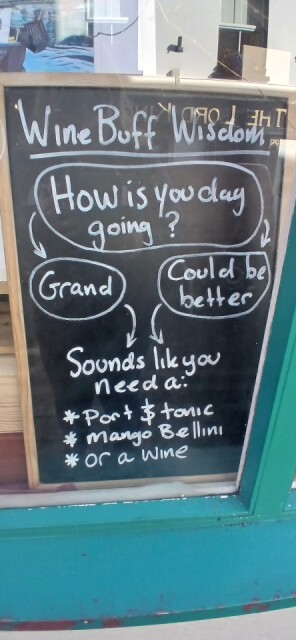 THE LORD K
Wine Buff Wisdom
How is you day
going?
Grand
Could be
better
Sounds like you
need a:
* Port $ tonic
* mango Bellini
* or a wine